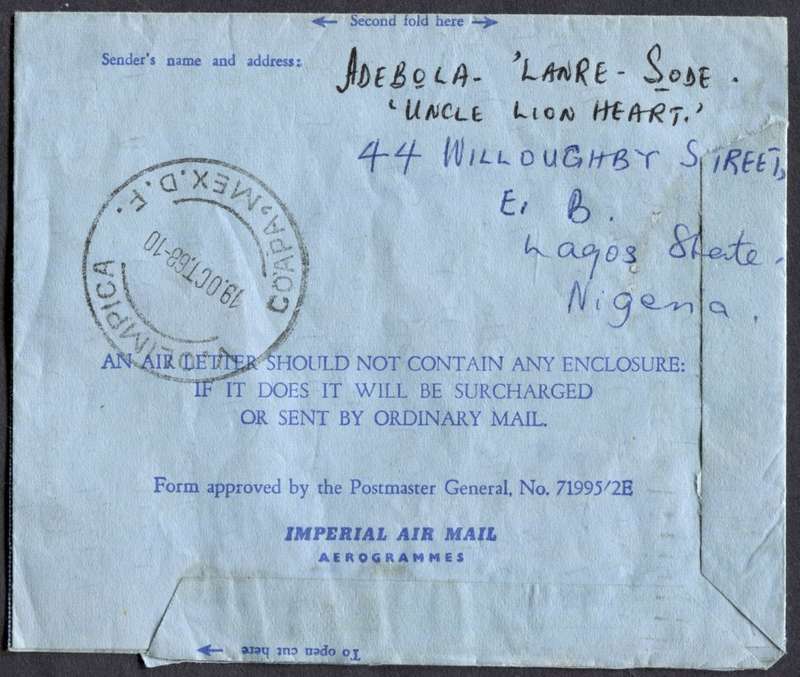 Second fold here
Sender's name and address:
ADEBOLA- 'LANRE - SODE.
'UNCLE LION HEART.'
44 WILLOUGHBY STREET,
E. B.
Lagos State.
Nigeria.
COAPA, MEX. D. F.
19. OCT. 68-10
OLIMPICA
AN AIR LETTER SHOULD NOT CONTAIN ANY ENCLOSURE:
IF IT DOES IT WILL BE SURCHARGED
OR SENT BY ORDINARY MAIL.
Form approved by the Postmaster General, No. 71995/2E
IMPERIAL AIR MAIL
AEROGRAMMES
To open cut here